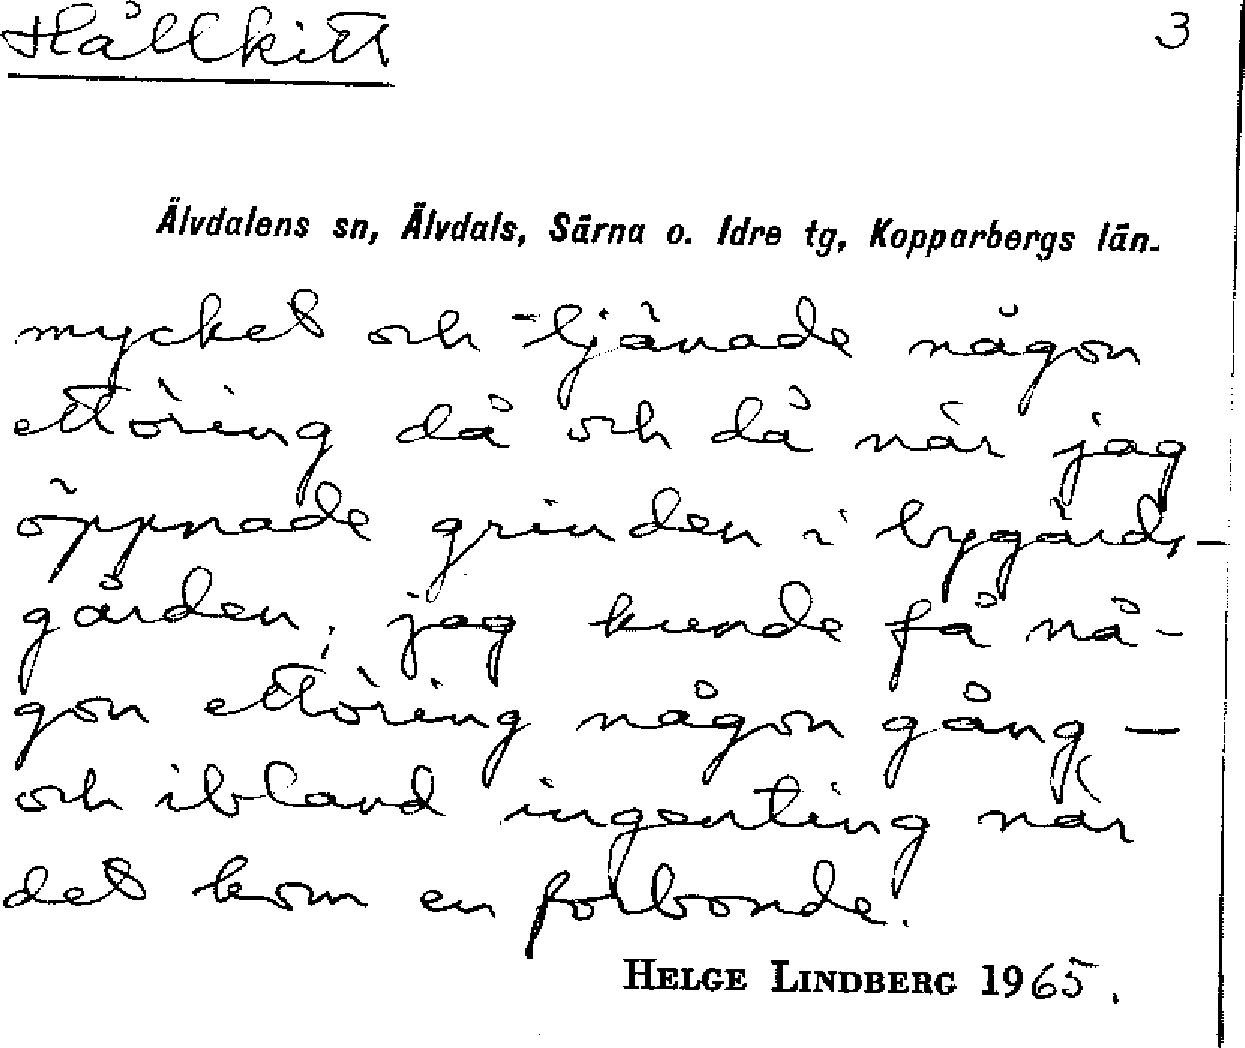 Hållkitt 3
Älvdalens sn, Älvdals, Särna o. Idre tg, Kopparbergs län.
mycket och tjänade någon
ettöring då och då när jag
öppnade grinden i bygårds-
gården, jag kunde få nå-
gon ettöring någon gång –
och ibland ingenting när
det kom en forbonde.
HELGE LINDBERG 1965.